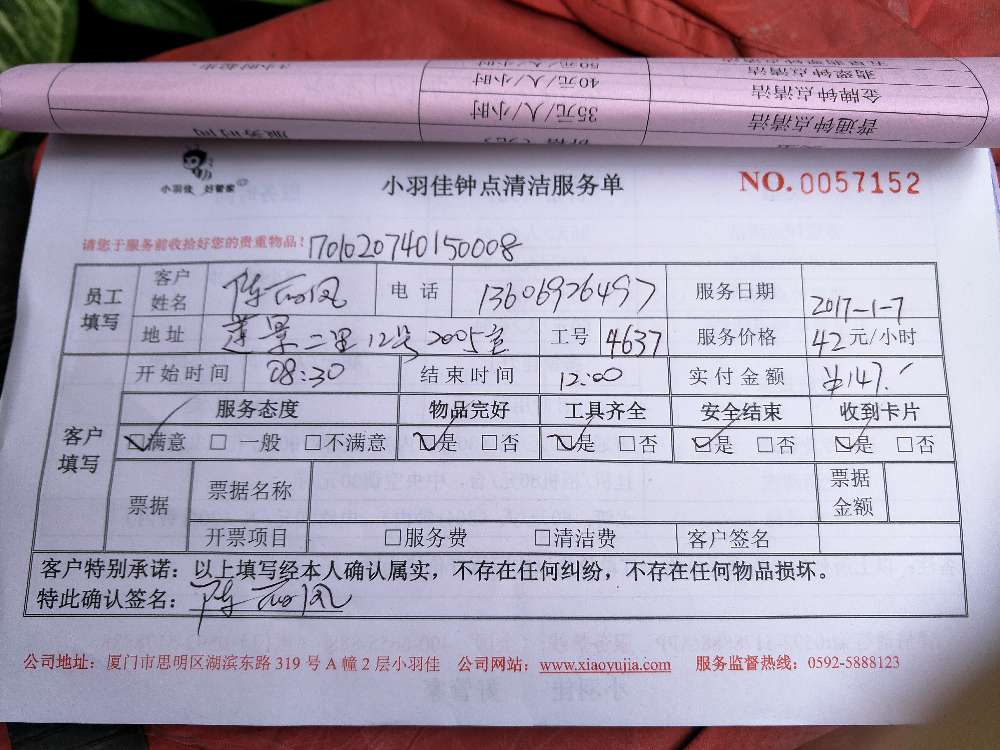 50元/人/小时
翡翠钟点清洁
40元/人/小时
金牌钟点清洁
35元/人/小时
普通钟点清洁
服务时间
小羽佳 好管家
小羽佳钟点清洁服务单
NO.0057152
请您于服务前收拾好您的贵重物品!
1701020740150008
员工填写 客户姓名 电话 13606926497 服务日期 2017-1-7
地址 莲景二里12号2005室 工号 4637 服务价格 42元/小时
客户填写 开始时间 08:30 结束时间 12:00 实付金额 ¥147.
服务态度 物品完好 工具齐全 安全结束 收到卡片
☑满意 □一般 □不满意 ☑是 □否 ☑是 □否 ☑是 □否 ☑是 □否
票据 票据名称 票据金额
开票项目 □服务费 □清洁费 客户签名
客户特别承诺：以上填写经本人确认属实，不存在任何纠纷，不存在任何物品损坏。
特此确认签名：
公司地址：厦门市思明区湖滨东路 319 号 A 幢 2 层小羽佳 公司网站：www.xiaoyujia.com 服务监督热线：0592-5888123